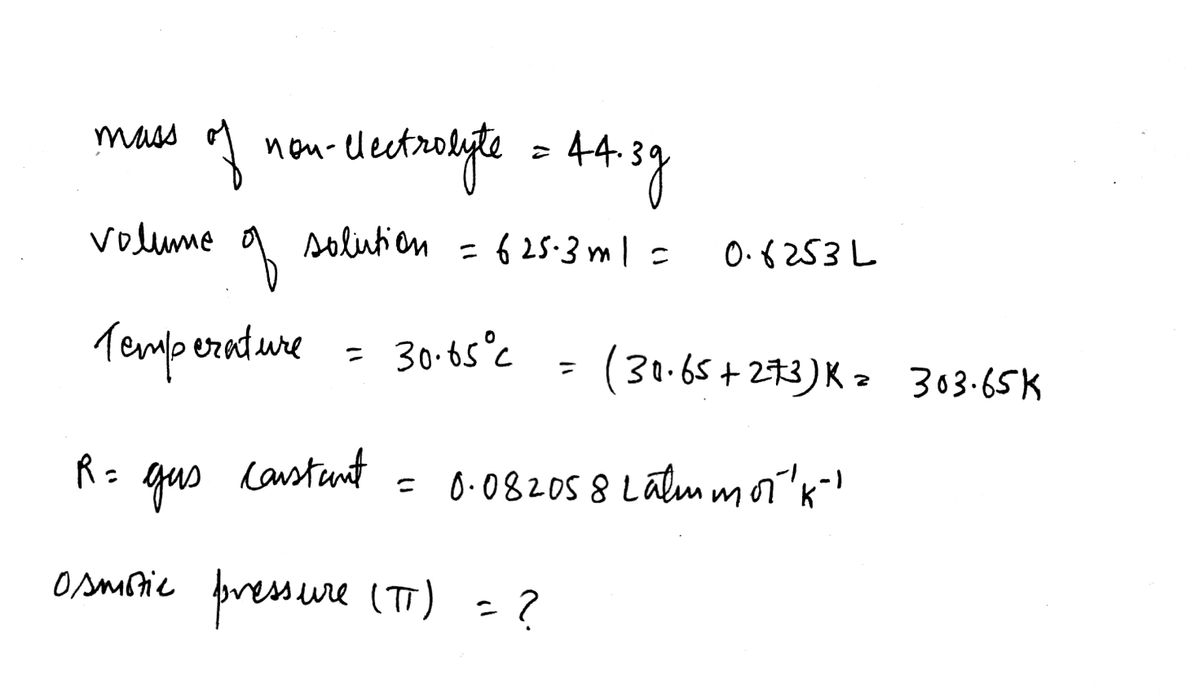 mass of non-electrolyte = 44.3g
volume of solution = 625.3 ml = 0.6253 L
Temperature = 30.65°C = (30.65 + 273)K = 303.65K
R = gas constant = 0.082058 L atm mol⁻¹ K⁻¹
Osmotic pressure (π) = ?